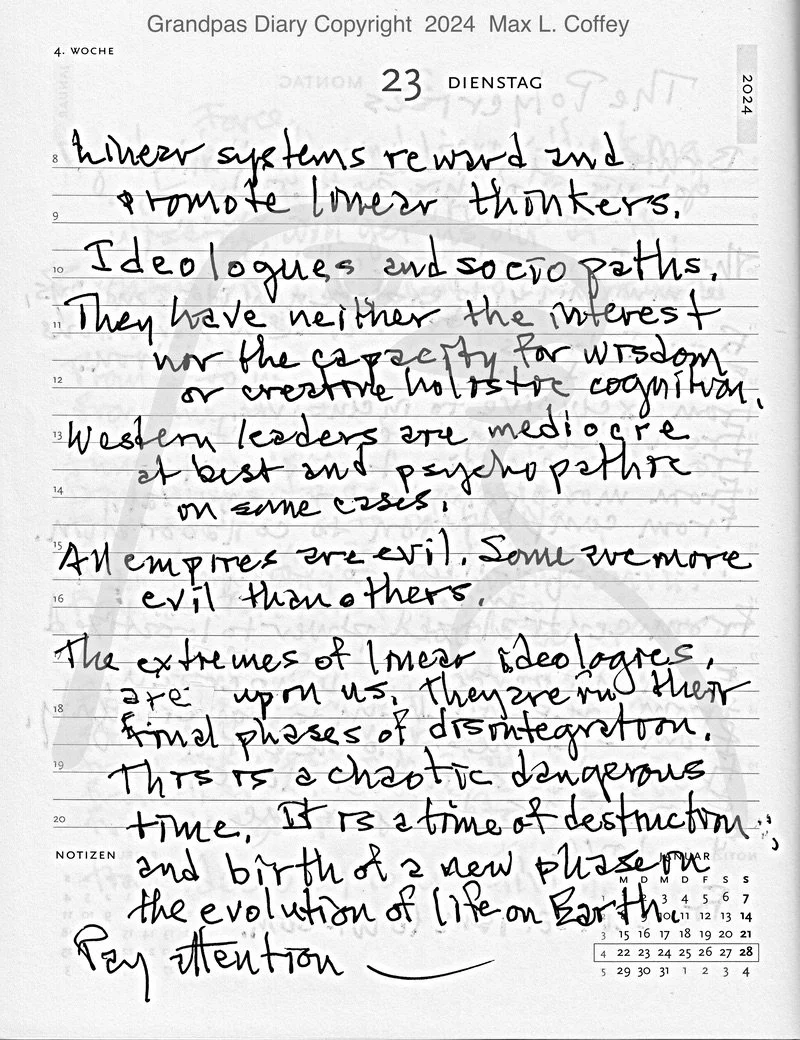 Grandpas Diary Copyright 2024 Max L. Coffey
4. WOCHE
23 DIENSTAG
2024
8 Linear systems reward and
promote linear thinkers.
9
10 Ideologues and sociopaths.
11 They have neither the interest
nor the capacity for wisdom
12 or creative holistic cognition.
13 Western leaders are mediocre
at best and psychopathic
14 in some cases.
15 All empires are evil. Some are more
16 evil than others.
17 The extremes of linear ideologies,
are upon us. They are in their
18 final phases of disintegration.
19 This is a chaotic dangerous
20 time. It is a time of destruction
NOTIZEN and birth of a new phase in
JANUAR
the evolution of life on Earth.
Pay attention
M D M D F S S
1 2 3 4 5 6 7
10 11 12 13 14
3 15 16 17 18 19 20 21
4 22 23 24 25 26 27 28
5 29 30 31 1 2 3 4